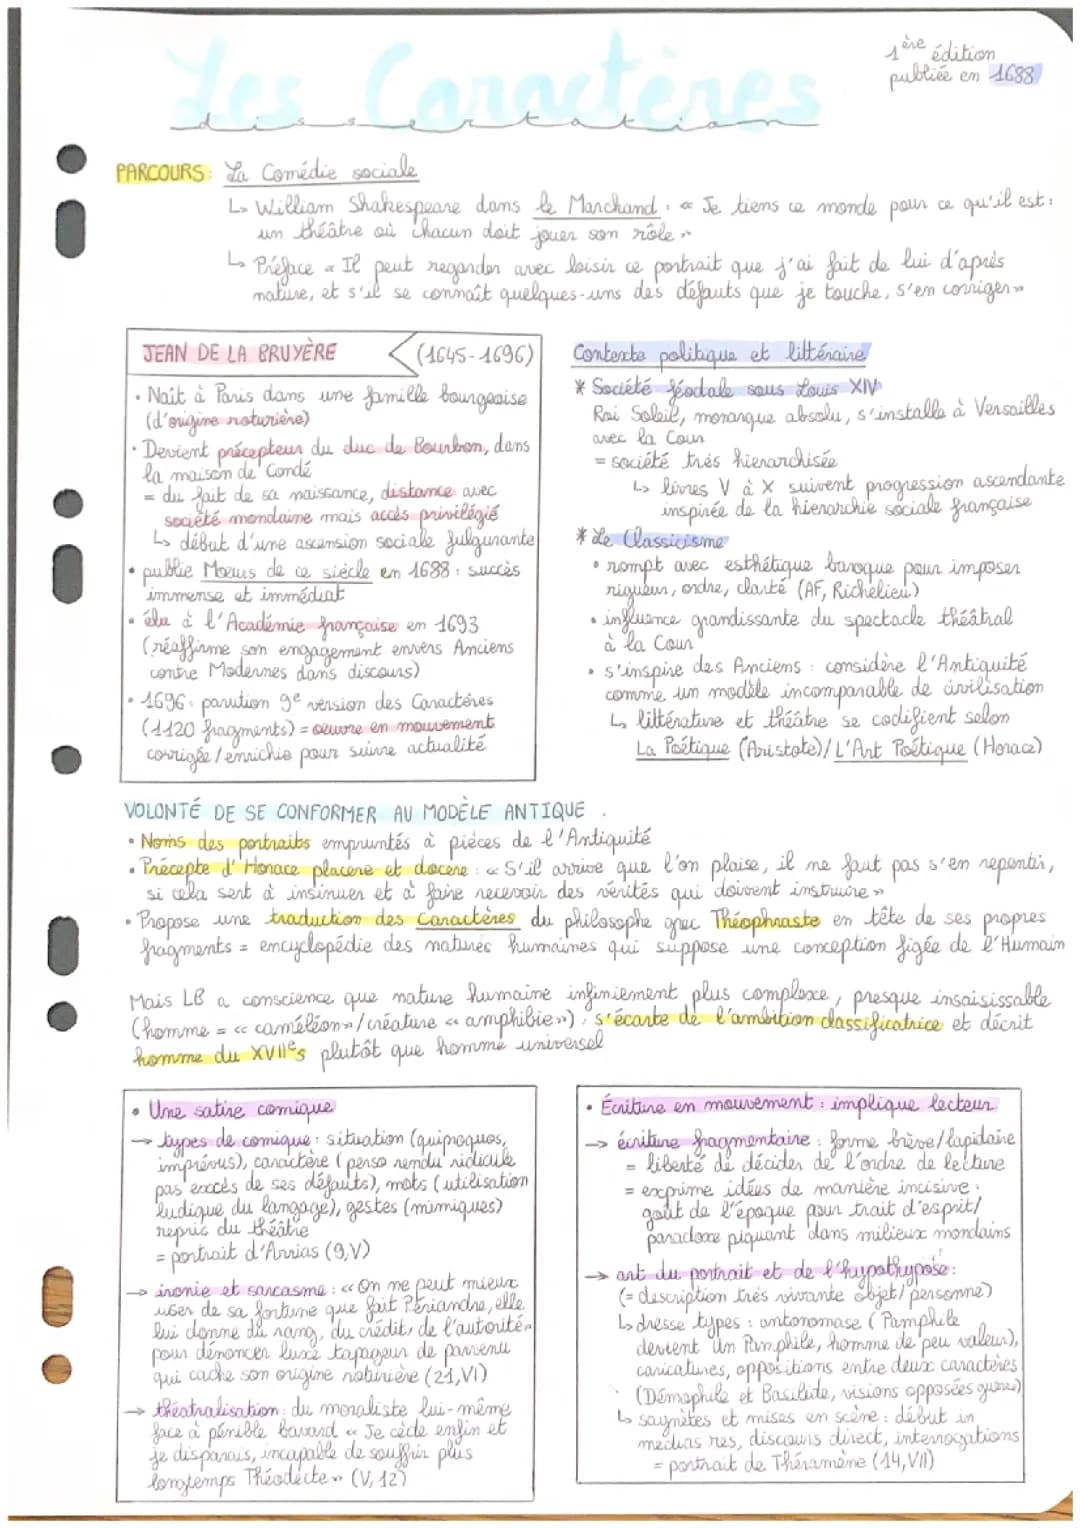 Les Caractères
dissertation
1ère édition
publiée en 1688
PARCOURS: La Comédie sociale
↳ William Shakespeare dans le Marchand : « Je tiens ce monde pour ce qu'il est :
un théâtre où chacun doit jouer son rôle »
↳ Préface « Il peut regarder avec loisir ce portrait que j'ai fait de lui d'après
nature, et s'il se connaît quelques-uns des défauts que je touche, s'en corriger »
JEAN DE LA BRUYÈRE (1645-1696)
• Naît à Paris dans une famille bourgeoise
(d'origine roturière)
• Devient précepteur du duc de Bourbon, dans
la maison de Condé
= du fait de sa naissance, distance avec
société mondaine mais accès privilégié
↳ début d'une ascension sociale fulgurante
• publie Mœurs de ce siècle en 1688 : succès
immense et immédiat
• élu à l'Académie française en 1693
(réaffirme son engagement envers Anciens
contre Modernes dans discours)
• 1696 : parution 9e version des Caractères
(1120 fragments) = œuvre en mouvement
corrigée/enrichie pour suivre actualité
Contexte politique et littéraire
* Société féodale sous Louis XIV
Roi Soleil, monarque absolu, s'installe à Versailles
avec la Cour
= société très hierarchisée
↳ livres V à X suivent progression ascendante
inspirée de la hierarchie sociale française
* Le Classicisme
• rompt avec esthétique baroque pour imposer
rigueur, ordre, clarté (AF, Richelieu)
• influence grandissante du spectacle théâtral
à la Cour
• s'inspire des Anciens : considère l'Antiquité
comme un modèle incomparable de civilisation
↳ littérature et théâtre se codifient selon
La Poétique (Aristote)/L'Art Poétique (Horace)
VOLONTÉ DE SE CONFORMER AU MODÈLE ANTIQUE
• Noms des portraits empruntés à pièces de l'Antiquité
• Précepte d'Horace placere et docere : « S'il arrive que l'on plaise, il ne faut pas s'en repentir,
si cela sert à insinuer et à faire recevoir des vérités qui doivent instruire »
• Propose une traduction des Caractères du philosophe grec Théophraste en tête de ses propres
fragments = encyclopédie des natures humaines qui suppose une conception figée de l'Humain
Mais LB a conscience que nature humaine infiniement plus complexe, presque insaisissable
(homme = « caméléon »/créature « amphibie ») : s'écarte de l'ambition classificatrice et décrit
homme du XVIIes plutôt que homme universel
• Une satire comique
→ types de comique : situation (quiproquos,
imprévus), caractère (perso rendu ridicule
pas excès de ses défauts), mots (utilisation
ludique du langage), gestes (mimiques)
repris du théâtre
= portrait d'Arrias (9,V)
→ ironie et sarcasme : « On ne peut mieux
user de sa fortune que fait Périandre, elle
lui donne du rang, du crédit, de l'autorité »
pour dénoncer luxe tapageur de parvenu
qui cache son origine roturière (21,VI)
→ théâtralisation du moraliste lui-même
face à pénible bavard « Je cède enfin et
je disparais, incapable de souffrir plus
longtemps Théodecte » (V, 12)
• Écriture en mouvement : implique lecteur
→ écriture fragmentaire : forme brève/lapidaire
= liberté de décider de l'ordre de lecture
= exprime idées de manière incisive :
goût de l'époque pour trait d'esprit/
paradoxe piquant dans milieux mondains
→ art du portrait et de l'hypothypose :
(= description très vivante objet/personne)
↳ dresse types : antonomase (Pamphile
devient un Pamphile, homme de peu valeur),
caricatures, oppositions entre deux caractères
(Démophile et Basilide, visions opposées guerre)
↳ saynètes et mises en scène : début in
medias res, discours direct, interrogations
= portrait de Théramène (14,VII)